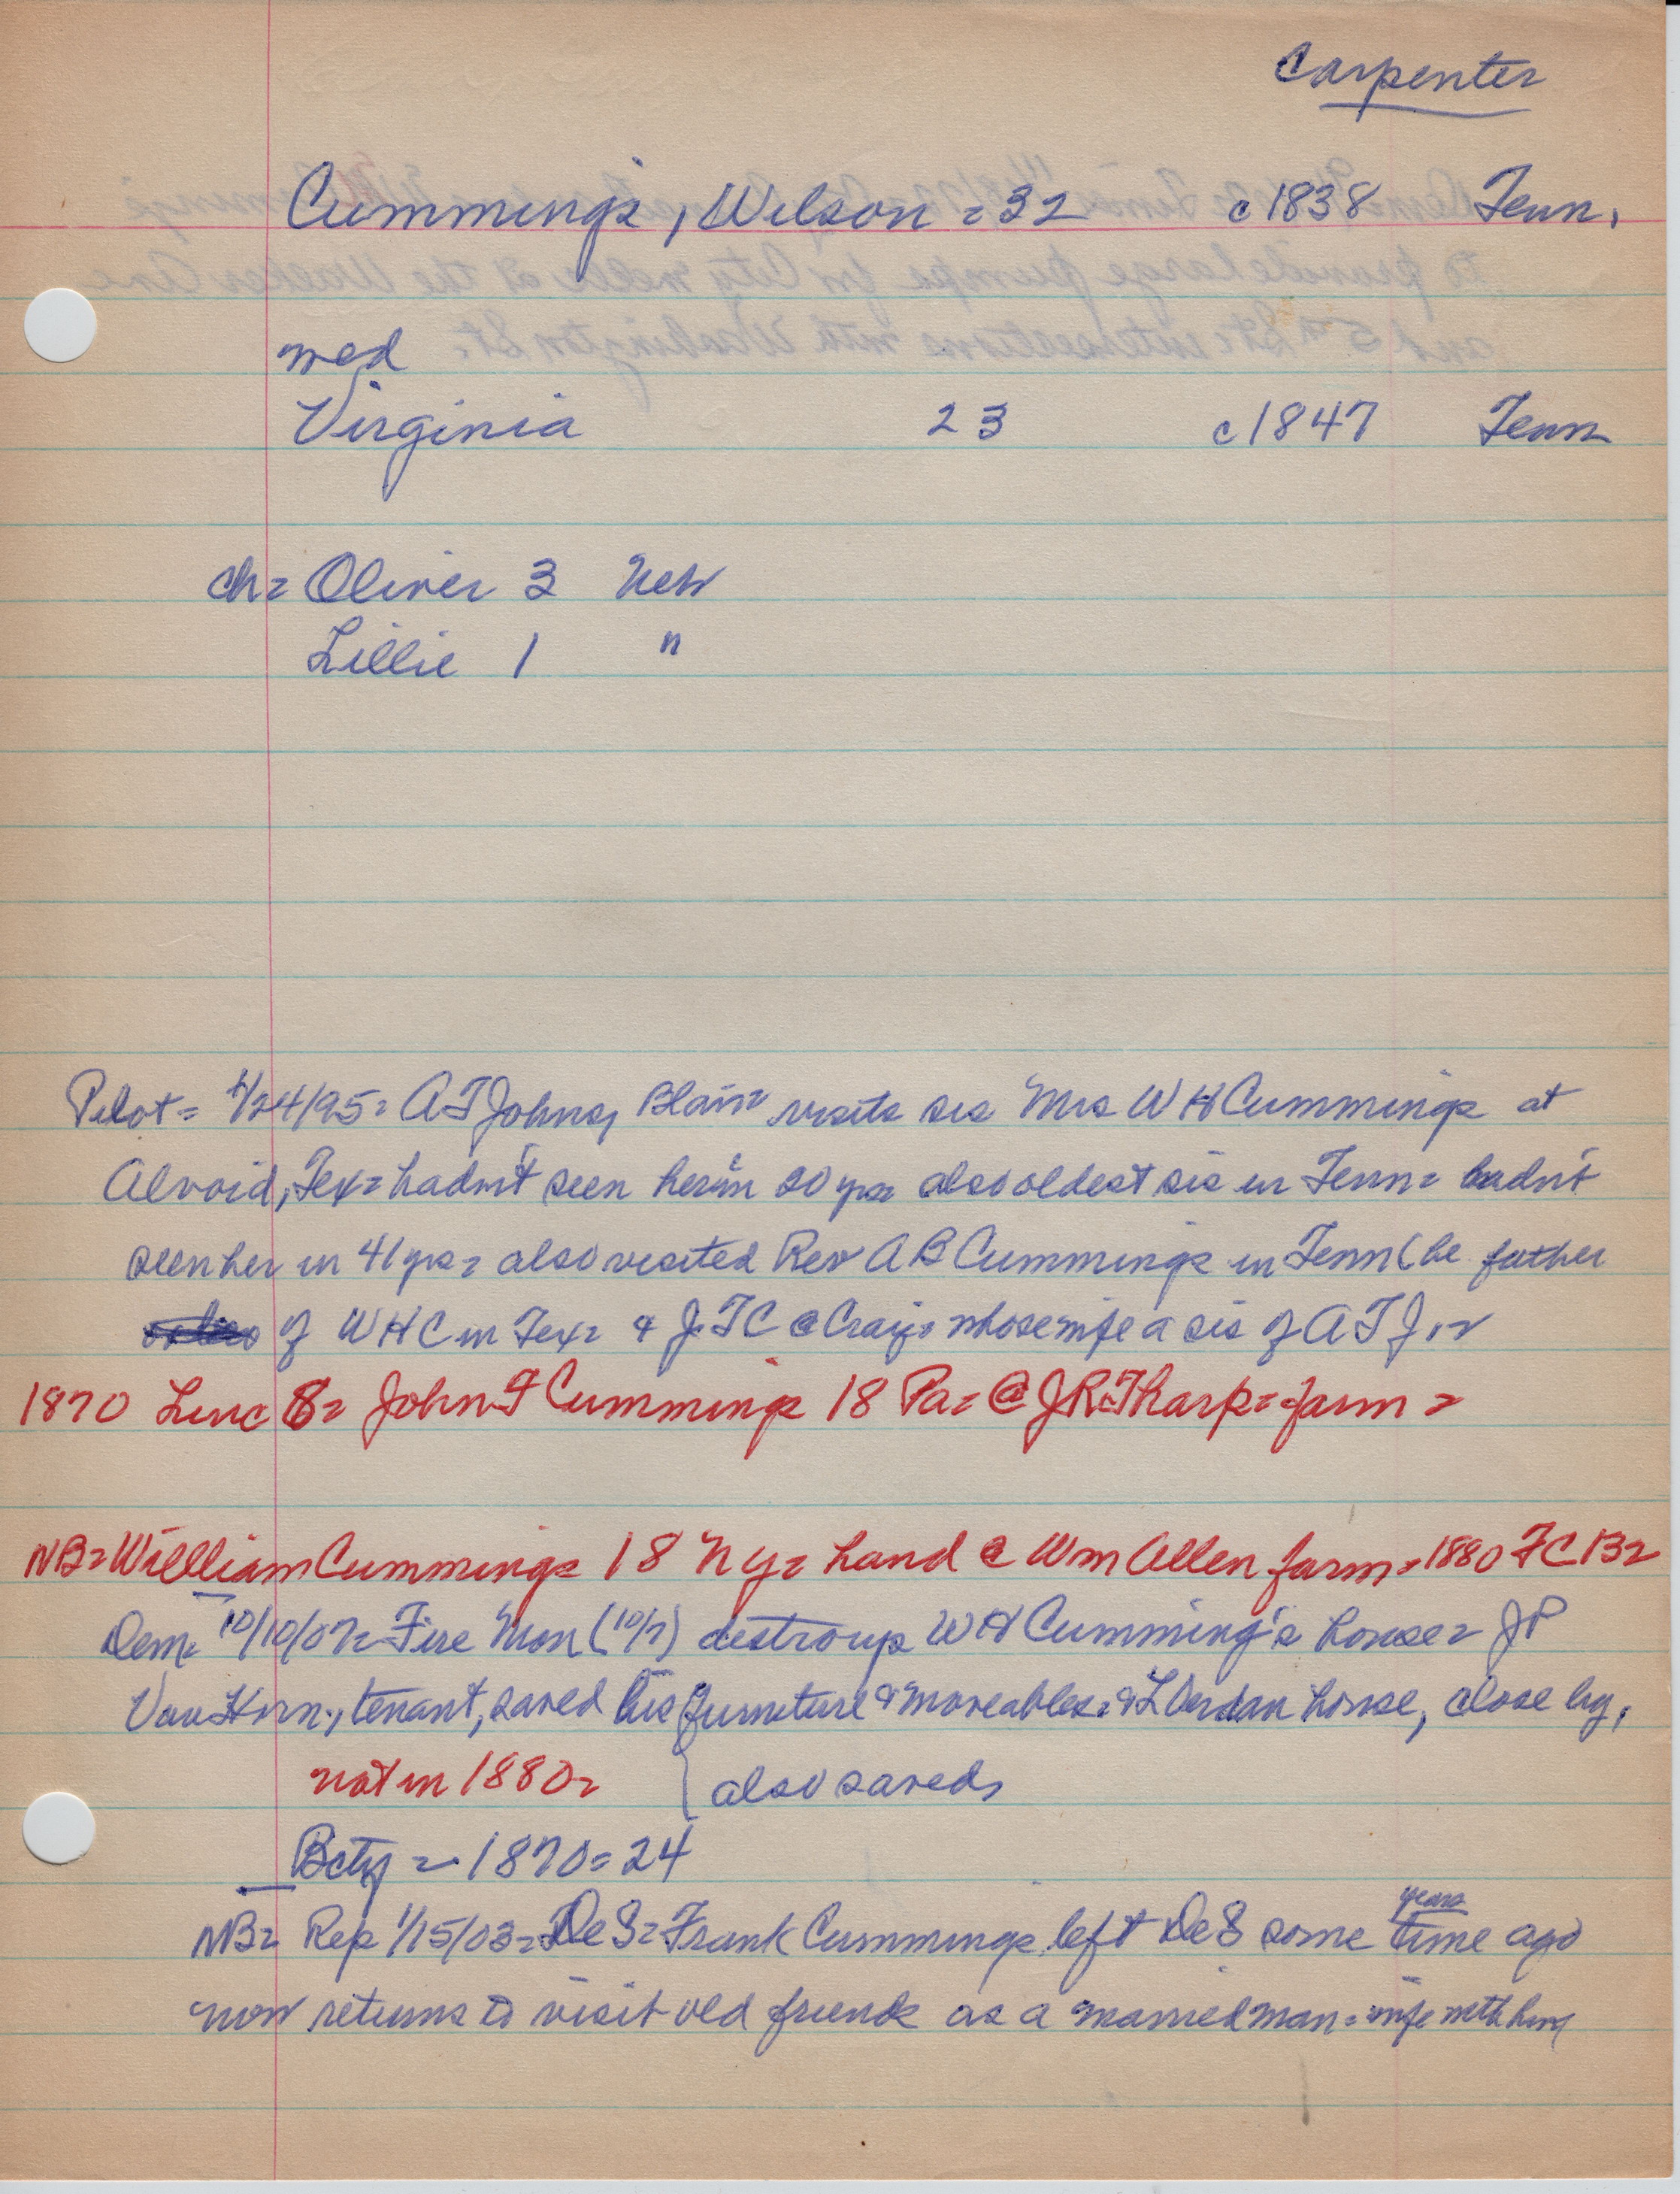 Carpenter
Cummings, Wilson = 32 c1838 Tenn.
med
Virginia 23 c1847 Tenn
ch= Oliver 3 Neb
Lillie 1 "
Pilot = 1/24/95= A T Johns, Blair visits sis Mrs W H Cummings at
Alvoid, Tex= hadn't seen her in 20 yrs also oldest sis in Tenn= hadn't
seen her in 41 yrs= also visited Rev A B Cummings in Tenn (he father
of W H C in Tex= & J. T C @ Craig= whose wife a sis of A T J.=
1870 Linc 8= John T Cummings 18 Pa= @ J R Tharp= farm =
NB= William Cummings 18 Ny= hand @ Wm Allen farm= 1880 FC B=
Dem= 10/10/07= Fire Mon (10/7) destroys W H Cumming's house= J P
Van Horn, tenant, saved his furniture & moveables= & L Jordan house, close by,
not in 1880= also saved,
Bcty = 1870= 24
years
NB= Rep 1/15/03= De S= Frank Cummings left De S some time ago
now returns to visit old friends as a married man= wife with him